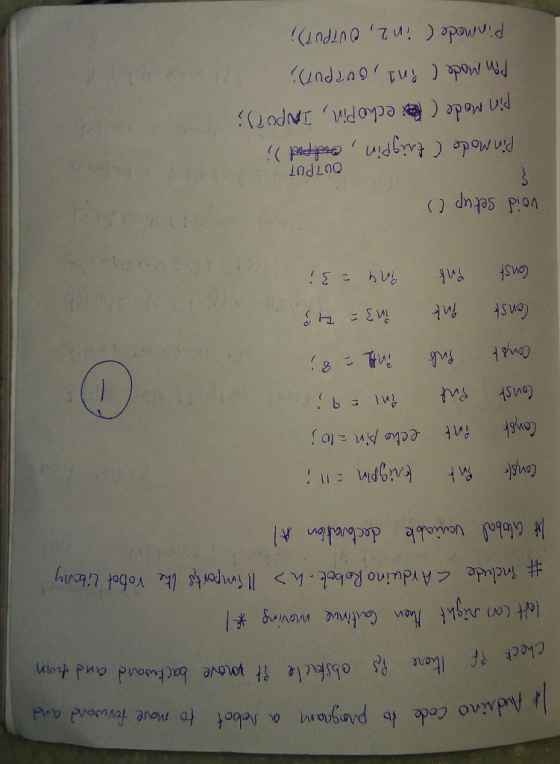 /* Arduino code to program a robot to move forward and
check if there is obstacle if move backward and turn
left (or) right then continue moving */
# include <ArduinoRobot.h> // imports the robot library
/* Global variable declaration */
const int trigpin = 11;
const int echopin = 10;
const int in1 = 9;
const int in2 = 8;
const int in3 = 4;
const int in4 = 3;
1
void setup ()
{
pinmode (trigpin, OUTPUT);
pinmode (echopin, INPUT);
pinmode (in1, OUTPUT);
pinmode (in2, OUTPUT);